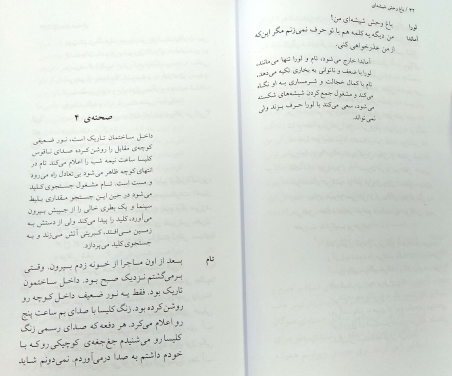 ۳۲ / باغ وحش شیشه‌ای
لورا باغ وحش شیشه‌ای من!
آماندا من دیگه یه کلمه هم با تو حرف نمی‌زنم مگر این‌که
از من عذرخواهی کنی.
آماندا خارج می‌شود، تام و لورا تنها می‌مانند.
لورا با ضعف و ناتوانی به بخاری تکیه می‌دهد.
تام با کمال خجالت و شرمساری به او نگاه
می‌کند و مشغول جمع کردن شیشه‌های شکسته
می‌شود، سعی می‌کند با لورا حرف بزند ولی
نمی‌تواند.
صحنه‌ی ۴
داخل ساختمان تاریک است، نور ضعیفی
کوچه‌ی مقابل را روشن کرده صدای ناقوس
کلیسا ساعت نیمه شب را اعلام می‌کند تام در
انتهای کوچه ظاهر می‌شود بی‌تعادل راه می‌رود
و مست است. تام مشغول جستجوی کلید
می‌شود در حین این جستجو مقداری بلیط
سینما و یک بطری خالی را از جیبش بیرون
می‌آورد، کلید را پیدا می‌کند ولی از دستش به
زمین می‌افتد، کبریتی آتش می‌زند و به
جستجوی کلید می‌پردازد.
تام بعد از اون ماجرا از خونه زدم بیرون. وقتی
برمی‌گشتم نزدیک صبح بود. داخل ساختمون
تاریک بود. فقط یه نور ضعیف داخل کوچه رو
روشن کرده بود. زنگ کلیسا با صدای بم ساعت پنج
رو اعلام می‌کرد. هر دفعه که صدای رسمی زنگ
کلیسا رو می‌شنیدم جغجغه‌ی کوچیکی رو که با
خودم داشتم به صدا درمی‌آوردم. نمی‌دونم شاید